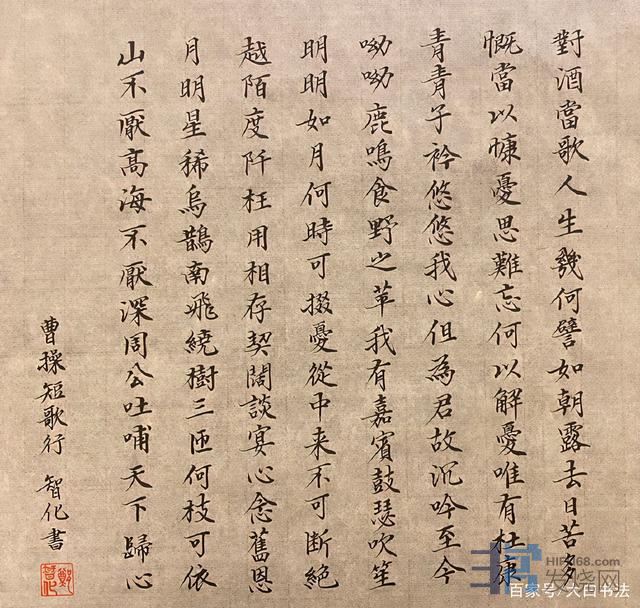 對酒當歌人生幾何譬如朝露去日苦多
慨當以慷憂思難忘何以解憂唯有杜康
青青子衿悠悠我心但為君故沉吟至今
呦呦鹿鳴食野之苹我有嘉賓鼓瑟吹笙
明明如月何時可掇憂從中来不可断絕
越陌度阡枉用相存契闊談宴心念舊恩
月明星稀烏鵲南飛繞樹三匝何枝可依
山不厭高海不厭深周公吐哺天下歸心
曹操短歌行 智化書
HIFI168.com
发烧网
百家号/